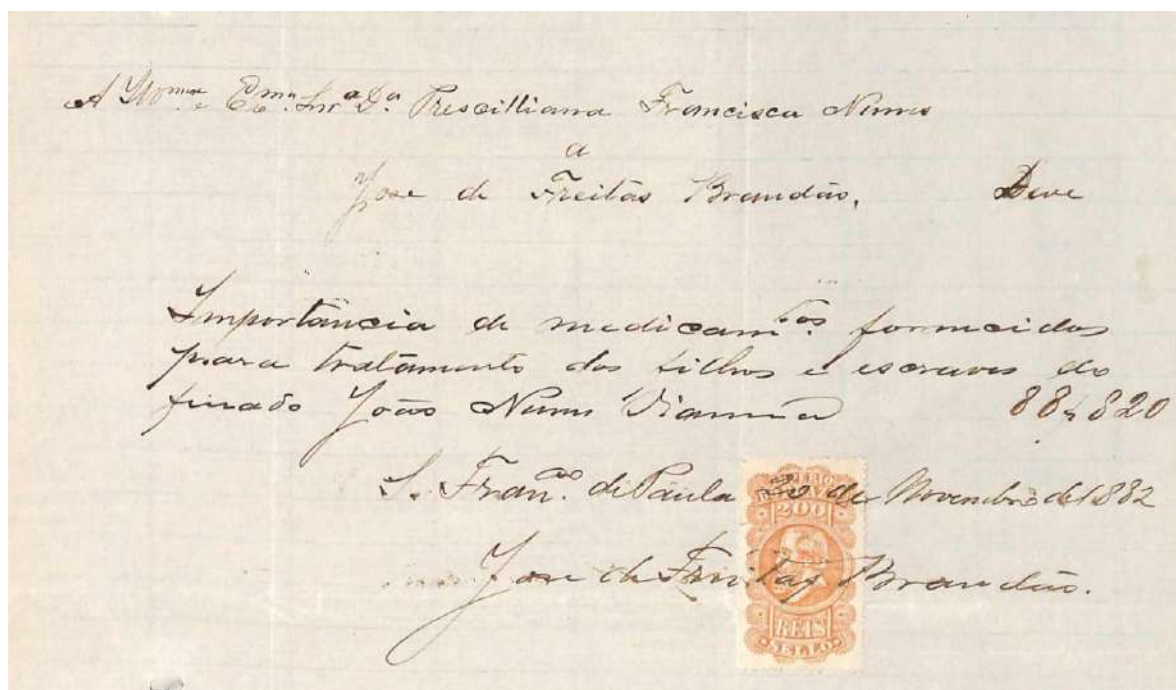 A Illma. e Exma. Snra. Da. Prescilliana Francisca Nunes
a
Jose de Freitas Brandão, Deve
Importancia de medicamtos. fornecidos
para tratamento dos filhos e escravos do
finado João Nunes Vianna 88$820
S. Franco. de Paula 20 de Novembro de 1882
Jose de Freitas Brandão.
IMPERIO
200
REIS
SELLO